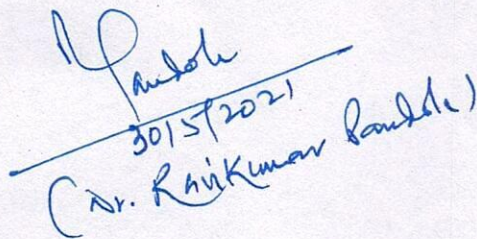 30/5/2021
(Dr. Ravikumar Bandole)